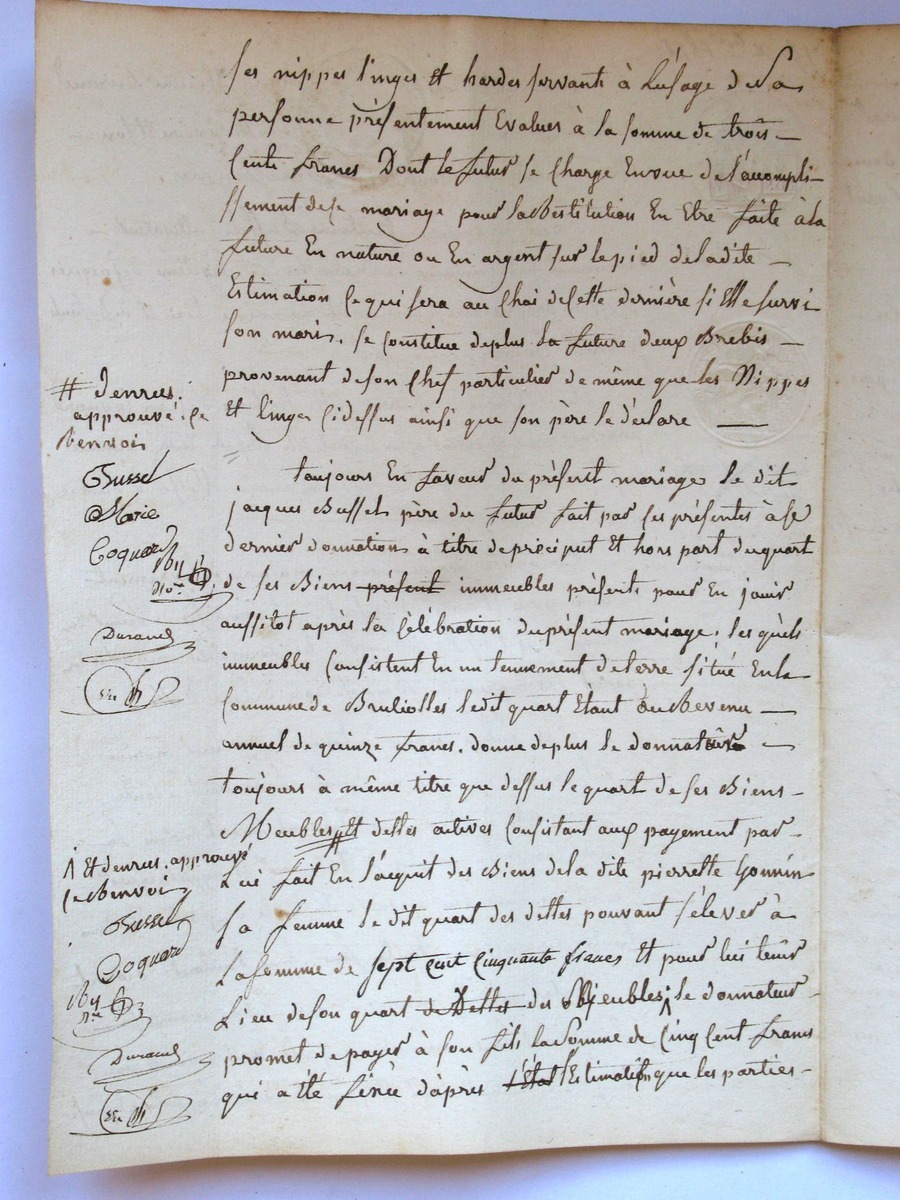 ses nippes linges Et hardes servants à L'usage de sa
personne présentement Evalués à la somme de trois
Cents francs Dont le futur se Charge En vue de l'accompli-
ssement de ce mariage pour la Restitution En Etre faite à la
future En nature ou En argent sur le pied de ladite
Estimation Ce qui sera au Choi de Cette dernière si Elle survi
son mari. se constitue de plus la future deux Brebis
provenant de son Chef particulier de même que les Nippes
Et linges Ci dessus ainsi que son père le déclare
# denrees.
approuvé. Ce
Renvoi
Bussel
Marie
Coquard
Durand
toujours En faveur du présent mariage le dit
jacques Bussel père du futur fait par ses présentes à ce
dernier donnation à titre de préciput Et hors part du quart
de ses Biens présent immeubles présents pour En jouir
aussitot après la Célébration du présent mariage, les quels
immeubles Consistent En un tennement de terre situé En la
Commune de Brullolles le dit quart Etant du Revenu
annuel de quinze francs. donne de plus le donnateur
toujours à même titre que dessus le quart de ses Biens
Meubles # Et dettes actives Consistant aux payement par
Lui fait En l'acquit des Biens de la dite pierrette Gonnin
sa femme le dit quart des dettes pouvant s'élever à
La somme de sept cent Cinquante francs Et pour lui tenir
Lieu de son quart de Dettes des Meubles, le donnateur
promet de payer à son fils la Somme de Cinq Cent francs
qui a été fixée d'après l'état l'Estimation que les parties
Λ Et denrees. approuvé
le Renvoi
Bussel
Coquard
Durand